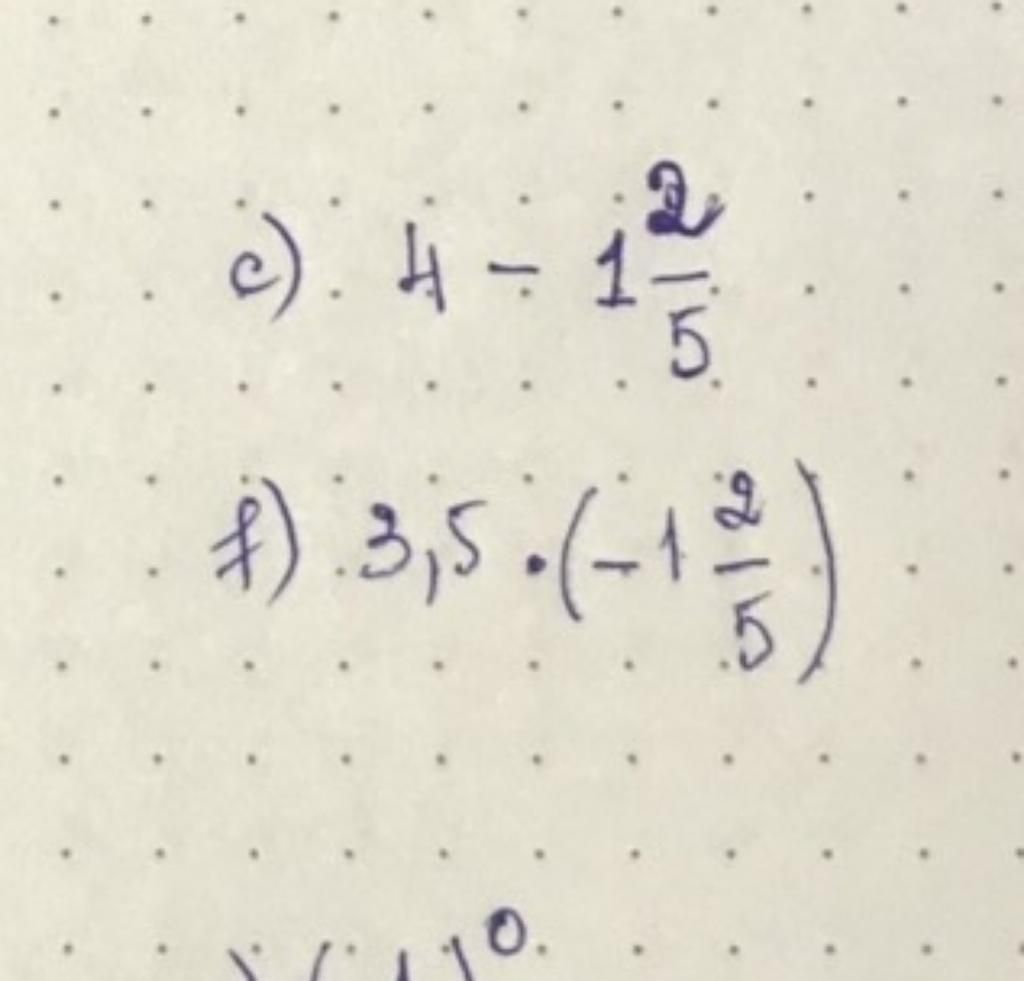 e) 4 - 1 2/5
f) 3,5 · (-1 2/5)